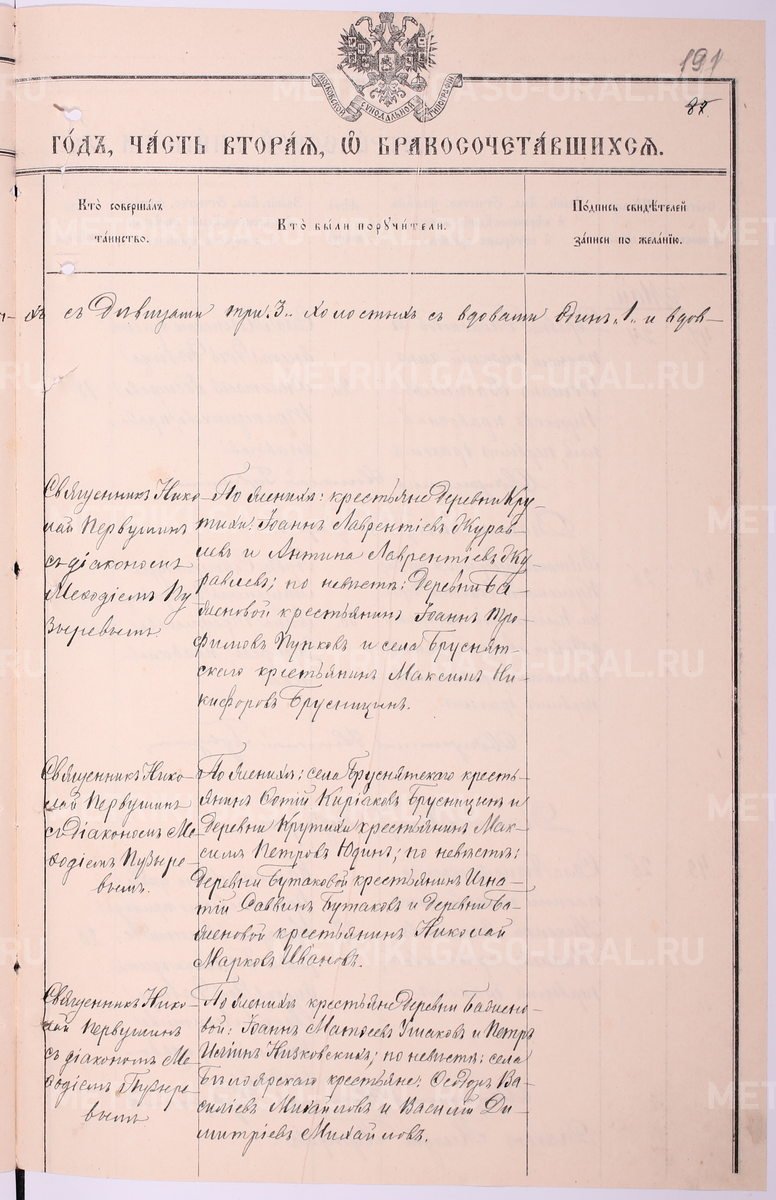 191
87.
МОСКОВСКОЙ СѴНОДАЛЬНОЙ ТИПОГРАФІИ
ГО́ДЪ, ЧА́СТЬ ВТОРА́Я, Ѽ БРАКОСОЧЕТА́ВШИХСЯ.
Кто̀ соверша́лъ
та́инство.
Кто̀ бы́ли порꙋчи́тели.
По́дпись свидѣ́телей
за́писи по жела́нїю.
съ дѣвицами три „3„ холостыхъ съ вдовами одинъ „1„ и вдов–
Священникъ Нико–
лай Первушинъ
съ діакономъ
Меѳодіемъ Пу
зыревымъ
По женихѣ: крестьяне деревни Кру–
тихи: Іоаннъ Лаврентіевъ Журав–
левъ и Антипа Лаврентіевъ Жу–
равлевъ; по невѣстѣ: деревни Ба–
женовой крестьянинъ Іоаннъ Тро–
фимовъ Пупковъ и села Бруснят–
скаго крестьянинъ Максимъ Ни–
кифоровъ Брусницинъ.
Священникъ Нико–
лай Первушинъ
съ діакономъ Ме–
ѳодіемъ Пузыре–
вымъ.
По женихѣ: села Бруснятскаго кресть–
янинъ Фотій Киріаковъ Брусницинъ и
деревни Крутихи крестьянинъ Мак–
симъ Петровъ Юдинъ; по невѣстѣ:
деревни Бутаковой крестьянинъ Игна–
тій Саввинъ Бутаковъ и деревни Ба–
женовой крестьянинъ Николай
Марковъ Ивановъ.
Священникъ Нико–
лай Первушинъ
съ діакономъ Ме–
ѳодіемъ Пузыре–
вымъ
По женихѣ крестьяне деревни Бажено–
вой: Іоаннъ Матѳеевъ Ушаковъ и Петръ
Низковскихъ; по невѣстѣ: села
Бѣлоярскаго крестьяне: Ѳеодоръ Ва–
силіевъ Михайловъ и Василій Ди–
митріевъ Михайловъ.
METRIKI.GASO-URAL.RU